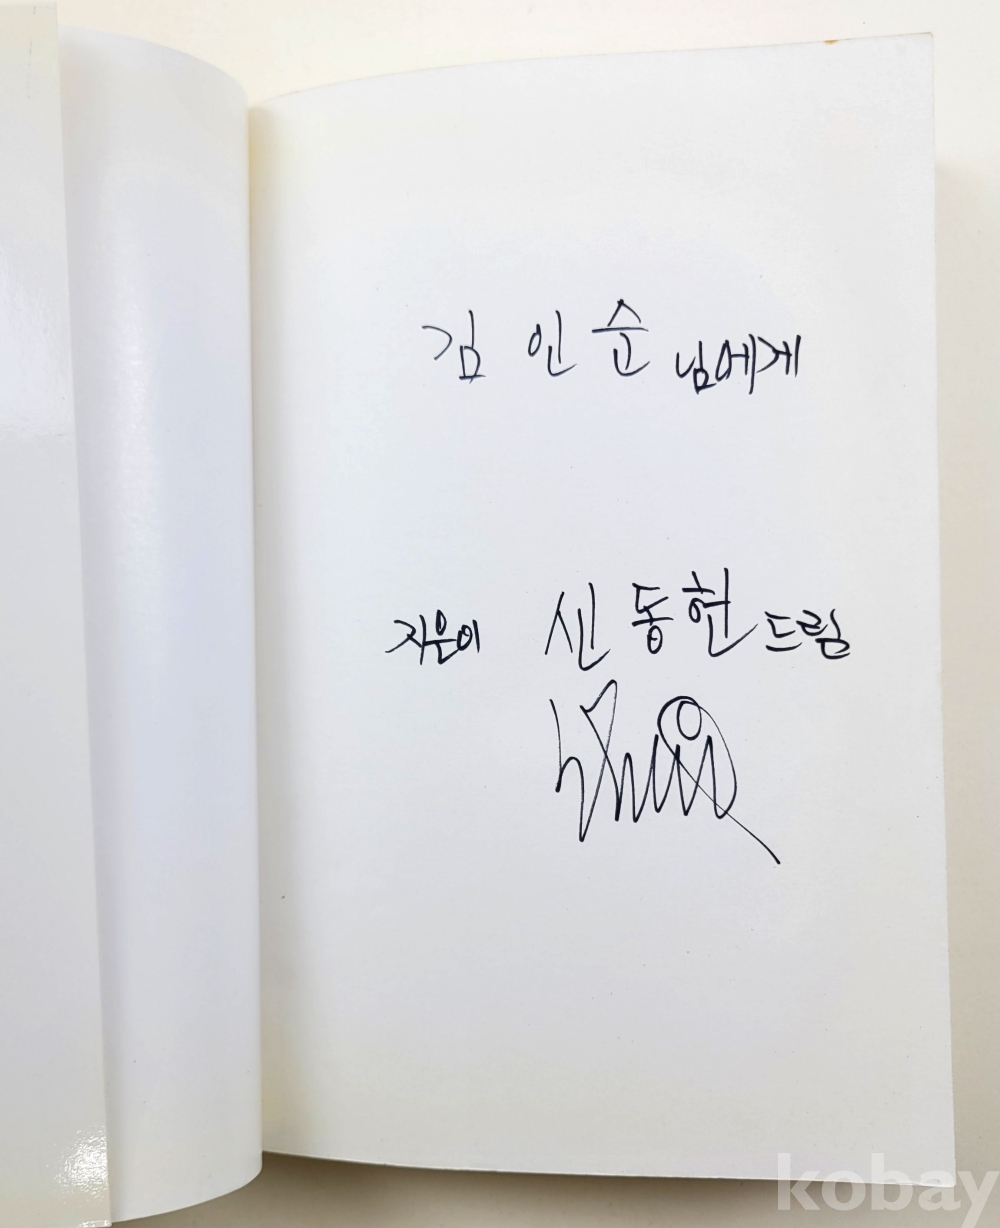 김 인 순 님에게
지은이 신 동 헌 드림
kobay